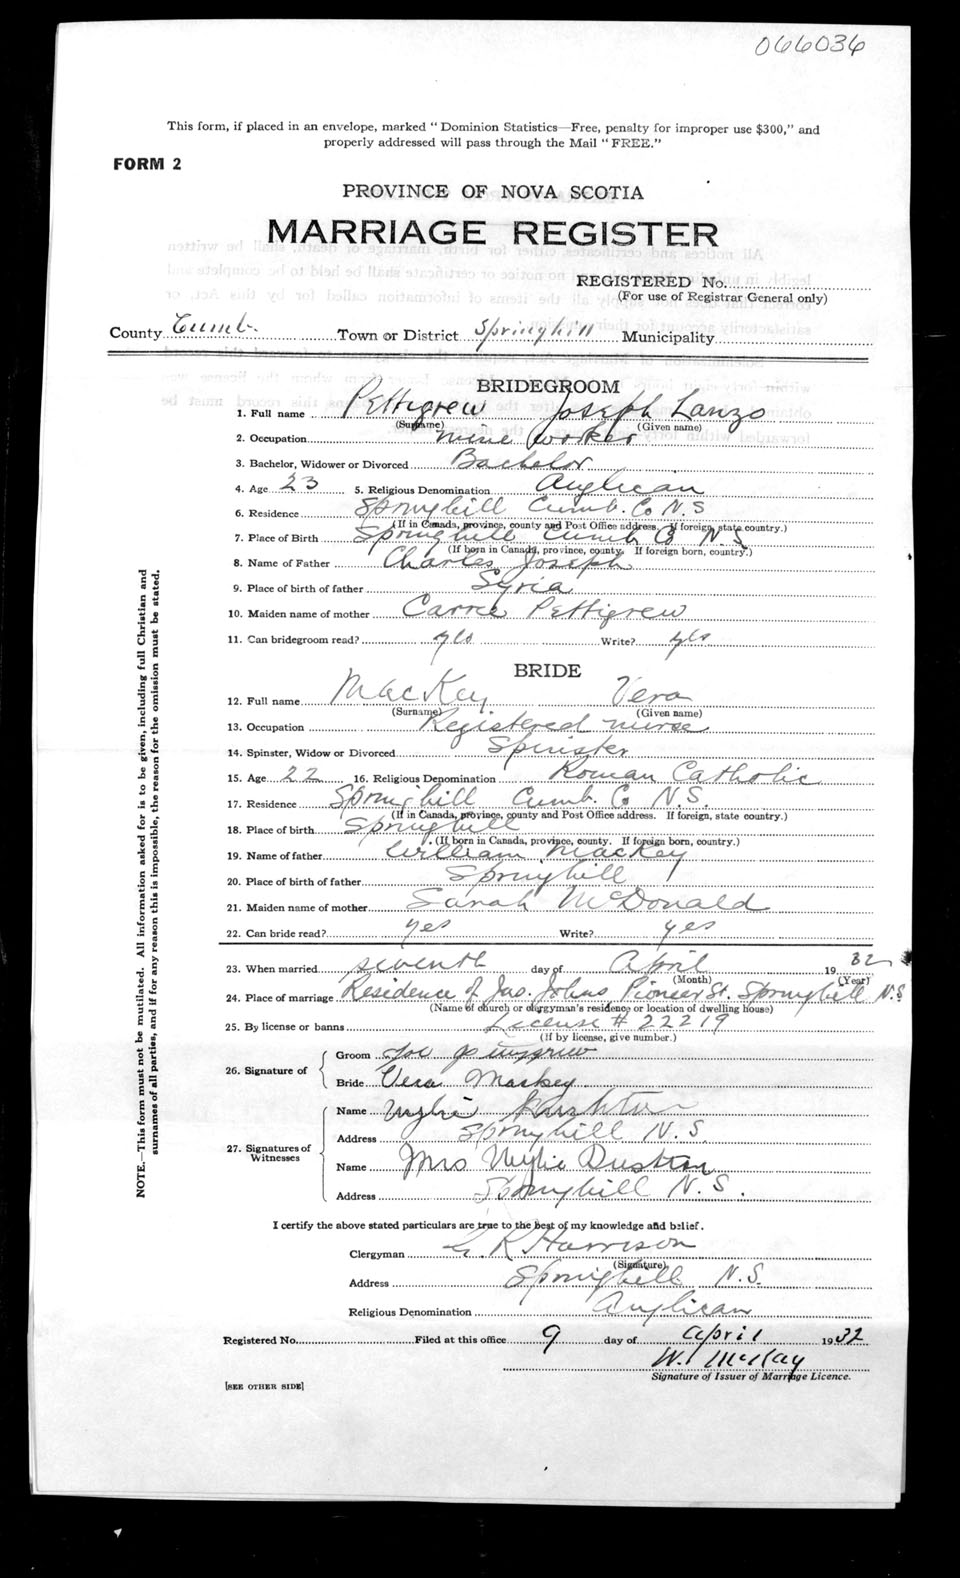 066036
This form, if placed in an envelope, marked "Dominion Statistics—Free, penalty for improper use $300," and
properly addressed will pass through the Mail "FREE."
FORM 2
PROVINCE OF NOVA SCOTIA
MARRIAGE REGISTER
REGISTERED No.
(For use of Registrar General only)
County Cumb. Town or District Springhill Municipality
BRIDEGROOM
1. Full name Pettigrew Joseph Lanzo
(Surname) (Given name)
2. Occupation mine worker
3. Bachelor, Widower or Divorced Bachelor
4. Age 23 5. Religious Denomination Anglican
6. Residence Springhill Cumb. Co N.S
(If in Canada, province, county and Post Office address. If foreign, state country.)
7. Place of Birth Springhill Cumb Co N.S
(If born in Canada, province, county. If foreign born, country.)
8. Name of Father Charles Joseph
9. Place of birth of father Syria
10. Maiden name of mother Carrie Pettigrew
11. Can bridegroom read? yes Write? yes
BRIDE
12. Full name MacKay Vera
(Surname) (Given name)
13. Occupation Registered nurse
14. Spinster, Widow or Divorced Spinster
15. Age 22 16. Religious Denomination Roman Catholic
17. Residence Springhill Cumb. Co N.S.
(If in Canada, province, county and Post Office address. If foreign, state country.)
18. Place of birth Springhill
(If born in Canada, province, county. If foreign born, country.)
19. Name of father William MacKay
20. Place of birth of father Springhill
21. Maiden name of mother Sarah McDonald
22. Can bride read? yes Write? yes
23. When married seventh day of April 1932
(Month) (Year)
24. Place of marriage Residence of Jas. Johns Pioneer St. Springhill N.S
(Name of church or clergyman's residence or location of dwelling house)
25. By license or banns License # 22219
(If by license, give number.)
26. Signature of
Groom Joe Pettigrew
Bride Vera Mackey
27. Signatures of Witnesses
Name Wylie
Address Springhill N.S.
Name Mrs Wylie
Address Springhill N.S.
I certify the above stated particulars are true to the best of my knowledge and belief.
Clergyman G. R Harrison
(Signature)
Address Springhill N.S.
Religious Denomination Anglican
Registered No. Filed at this office 9 day of April 1932
W. McKay
Signature of Issuer of Marriage Licence.
[SEE OTHER SIDE]
NOTE.—This form must not be mutilated. All information asked for is to be given, including full Christian and
surnames of all parties, and if for any reason this is impossible, the reason for the omission must be stated.